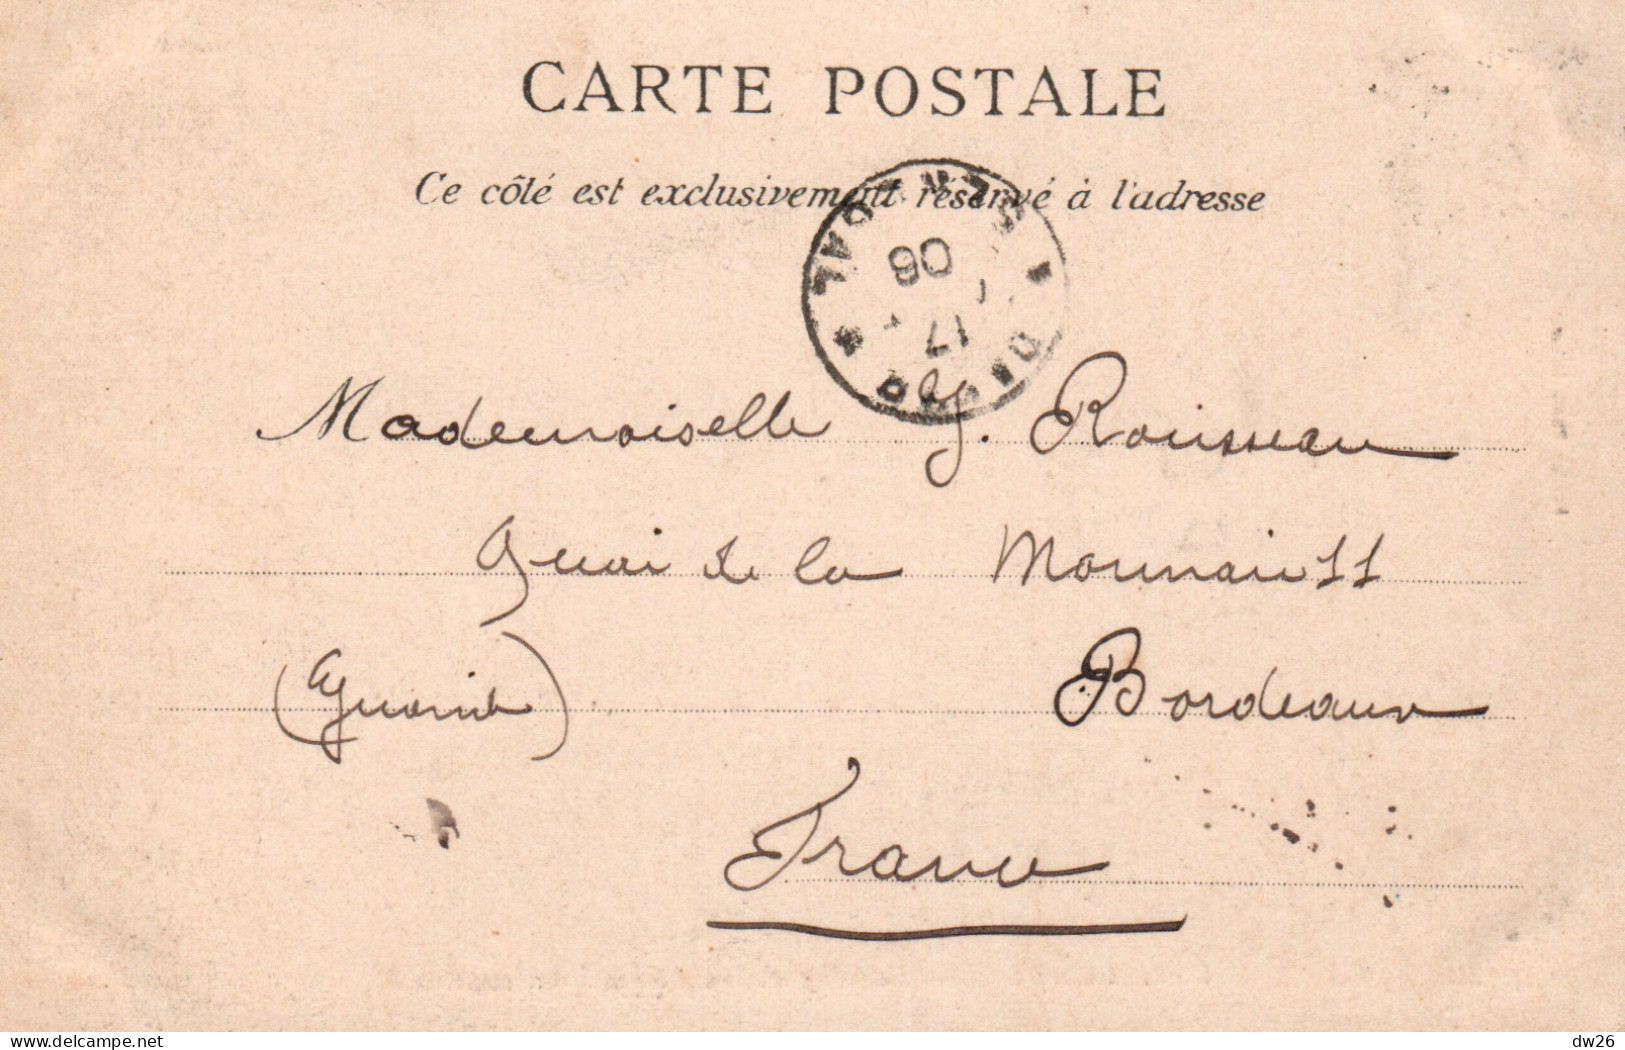 CARTE POSTALE
Ce côté est exclusivement réservé à l'adresse
06
17
Mademoiselle J. Rousseau
Quai de la Monnaie 11
(Gironde) Bordeaux
France
dw26